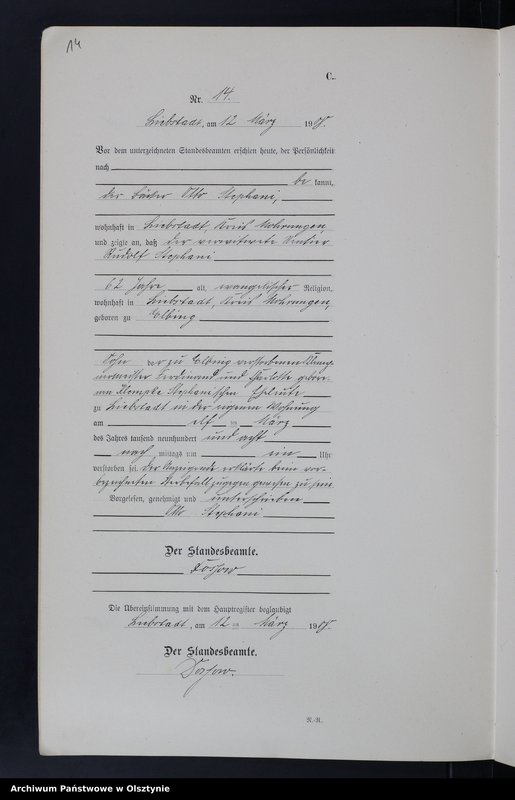 14
C.
Nr. 14.
Liebstadt, am 12 März 1908.
Vor dem unterzeichneten Standesbeamten erschien heute, der Persönlichkeit
nach
be kannt,
der Bäcker Otto Stephani,
wohnhaft in Liebstadt, Kreis Mohrungen
und zeigte an, daß der verwitwete Rentier
Rudolf Stephani
62 Jahre alt, evangelischer Religion,
wohnhaft in Liebstadt, Kreis Mohrungen,
geboren zu Elbing
Sohn der zu Elbing verstorbenen
Ferdinand und Charlotte gebore
nen Stephanischen Eheleute
zu Liebstadt in der eigenen Wohnung
am elf ten März
des Jahres tausend neunhundert und acht
nach mittags um ein Uhr
verstorben sei. Der Anzeigende erklärte beim vor-
bezeichneten Sterbefall zugegen gewesen zu sein
Vorgelesen, genehmigt und unterschrieben
Otto Stephani
Der Standesbeamte.
Die Übereinstimmung mit dem Hauptregister beglaubigt
Liebstadt, am 12 ten März 1908.
Der Standesbeamte.
R.-R.
Archiwum Państwowe w Olsztynie